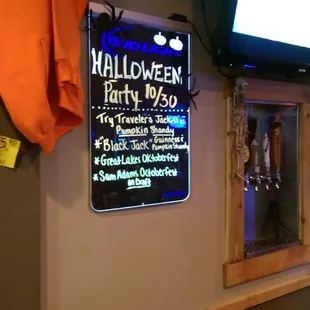 BUD LIGHT
HALLOWEEN
Party 10/30
Try Traveler's Jack-O
Pumpkin Shandy
*"Black Jack" Guinness &
Pumpkin Shandy
*Great Lakes Oktoberfest
*Sam Adams Octoberfest
on Draft